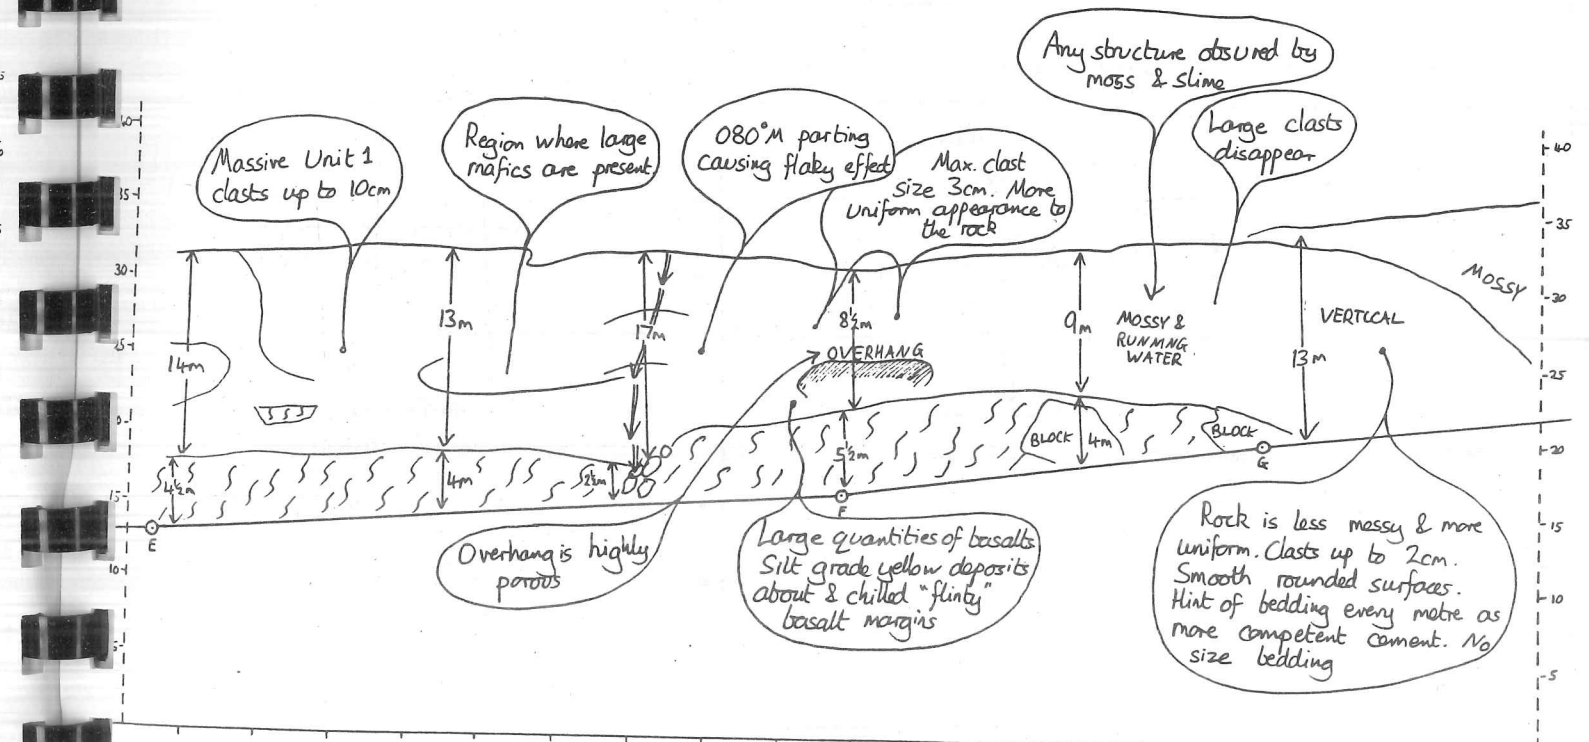 Any structure obsured by
moss & slime
Massive Unit 1
clasts up to 10cm
Region where large
mafics are present.
080°M parting
causing flaky effect
Max. clast
size 3cm. More
Uniform appearance to
the rock
Large clasts
disappear
40
35
30
15
10
40
35
30
25
20
15
10
5
14m
13m
17m
8½m
9m
13m
OVERHANG
MOSSY &
RUNNING
WATER
VERTICAL
MOSSY
4½m
4m
2½m
5½m
BLOCK
4m
BLOCK
E
F
G
Overhang is highly
porous
Large quantities of basalts
Silt grade yellow deposits
about & chilled "flinty"
basalt margins
Rock is less mossy & more
uniform. Clasts up to 2cm.
Smooth rounded surfaces.
Hint of bedding every metre as
more competent cement. No
size bedding